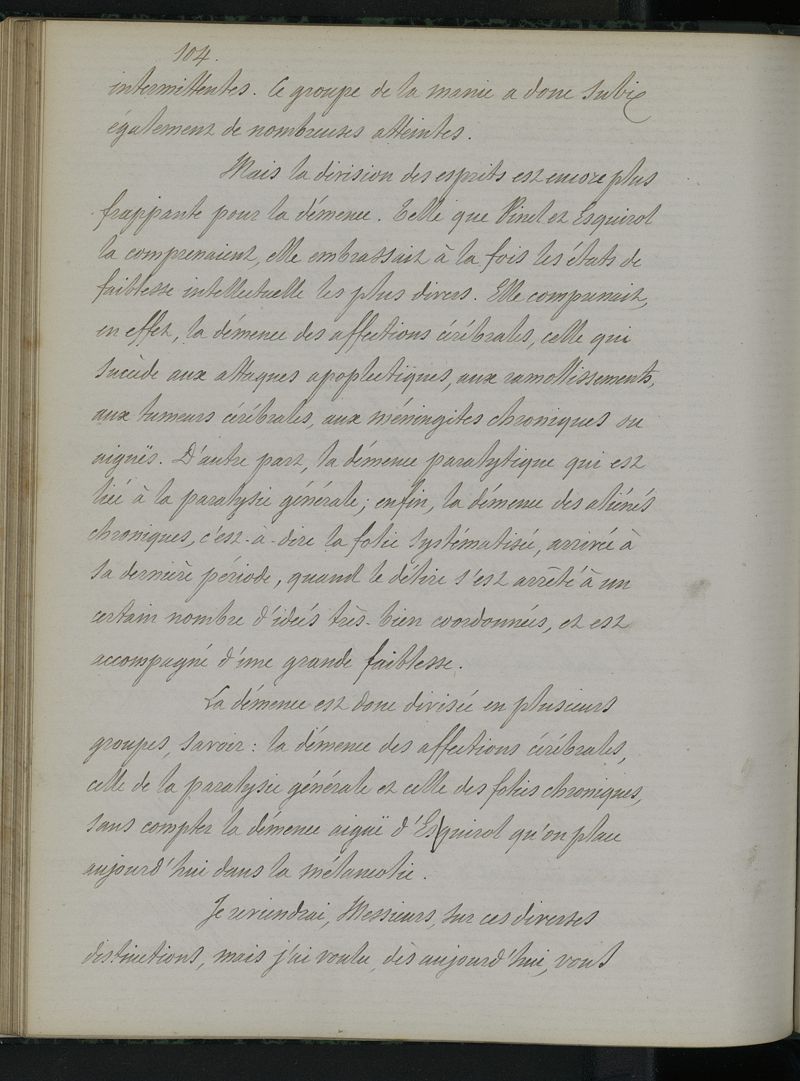 104.
intermittentes. Ce groupe de la manie a donc subi
également de nombreuses atteintes.
Mais la division des esprits est encore plus
frappante pour la démence. Telle que Pinel et Esquirol
la comprenaient, elle embrassait à la fois les états de
faiblesse intellectuelle les plus divers. Elle comprenait,
en effet, la démence des affections cérébrales, celle qui
succède aux attaques apoplectiques, aux ramollissements,
aux tumeurs cérébrales, aux méningites chroniques ou
aiguës. D'autre part, la démence paralytique qui est
liée à la paralysie générale; enfin, la démence des aliénés
chroniques, c'est-à-dire la folie systématisée, arrivée à
sa dernière période, quand le délire s'est arrêté à un
certain nombre d'idées très-bien coordonnées, et est
accompagné d'une grande faiblesse.
La démence est donc divisée en plusieurs
groupes, savoir: la démence des affections cérébrales,
celle de la paralysie générale et celle des folies chroniques,
sans compter la démence aiguë d'Esquirol qu'on place
aujourd'hui dans la mélancolie.
Je reviendrai, Messieurs, sur ces diverses
distinctions, mais j'ai voulu, dès aujourd'hui, vous